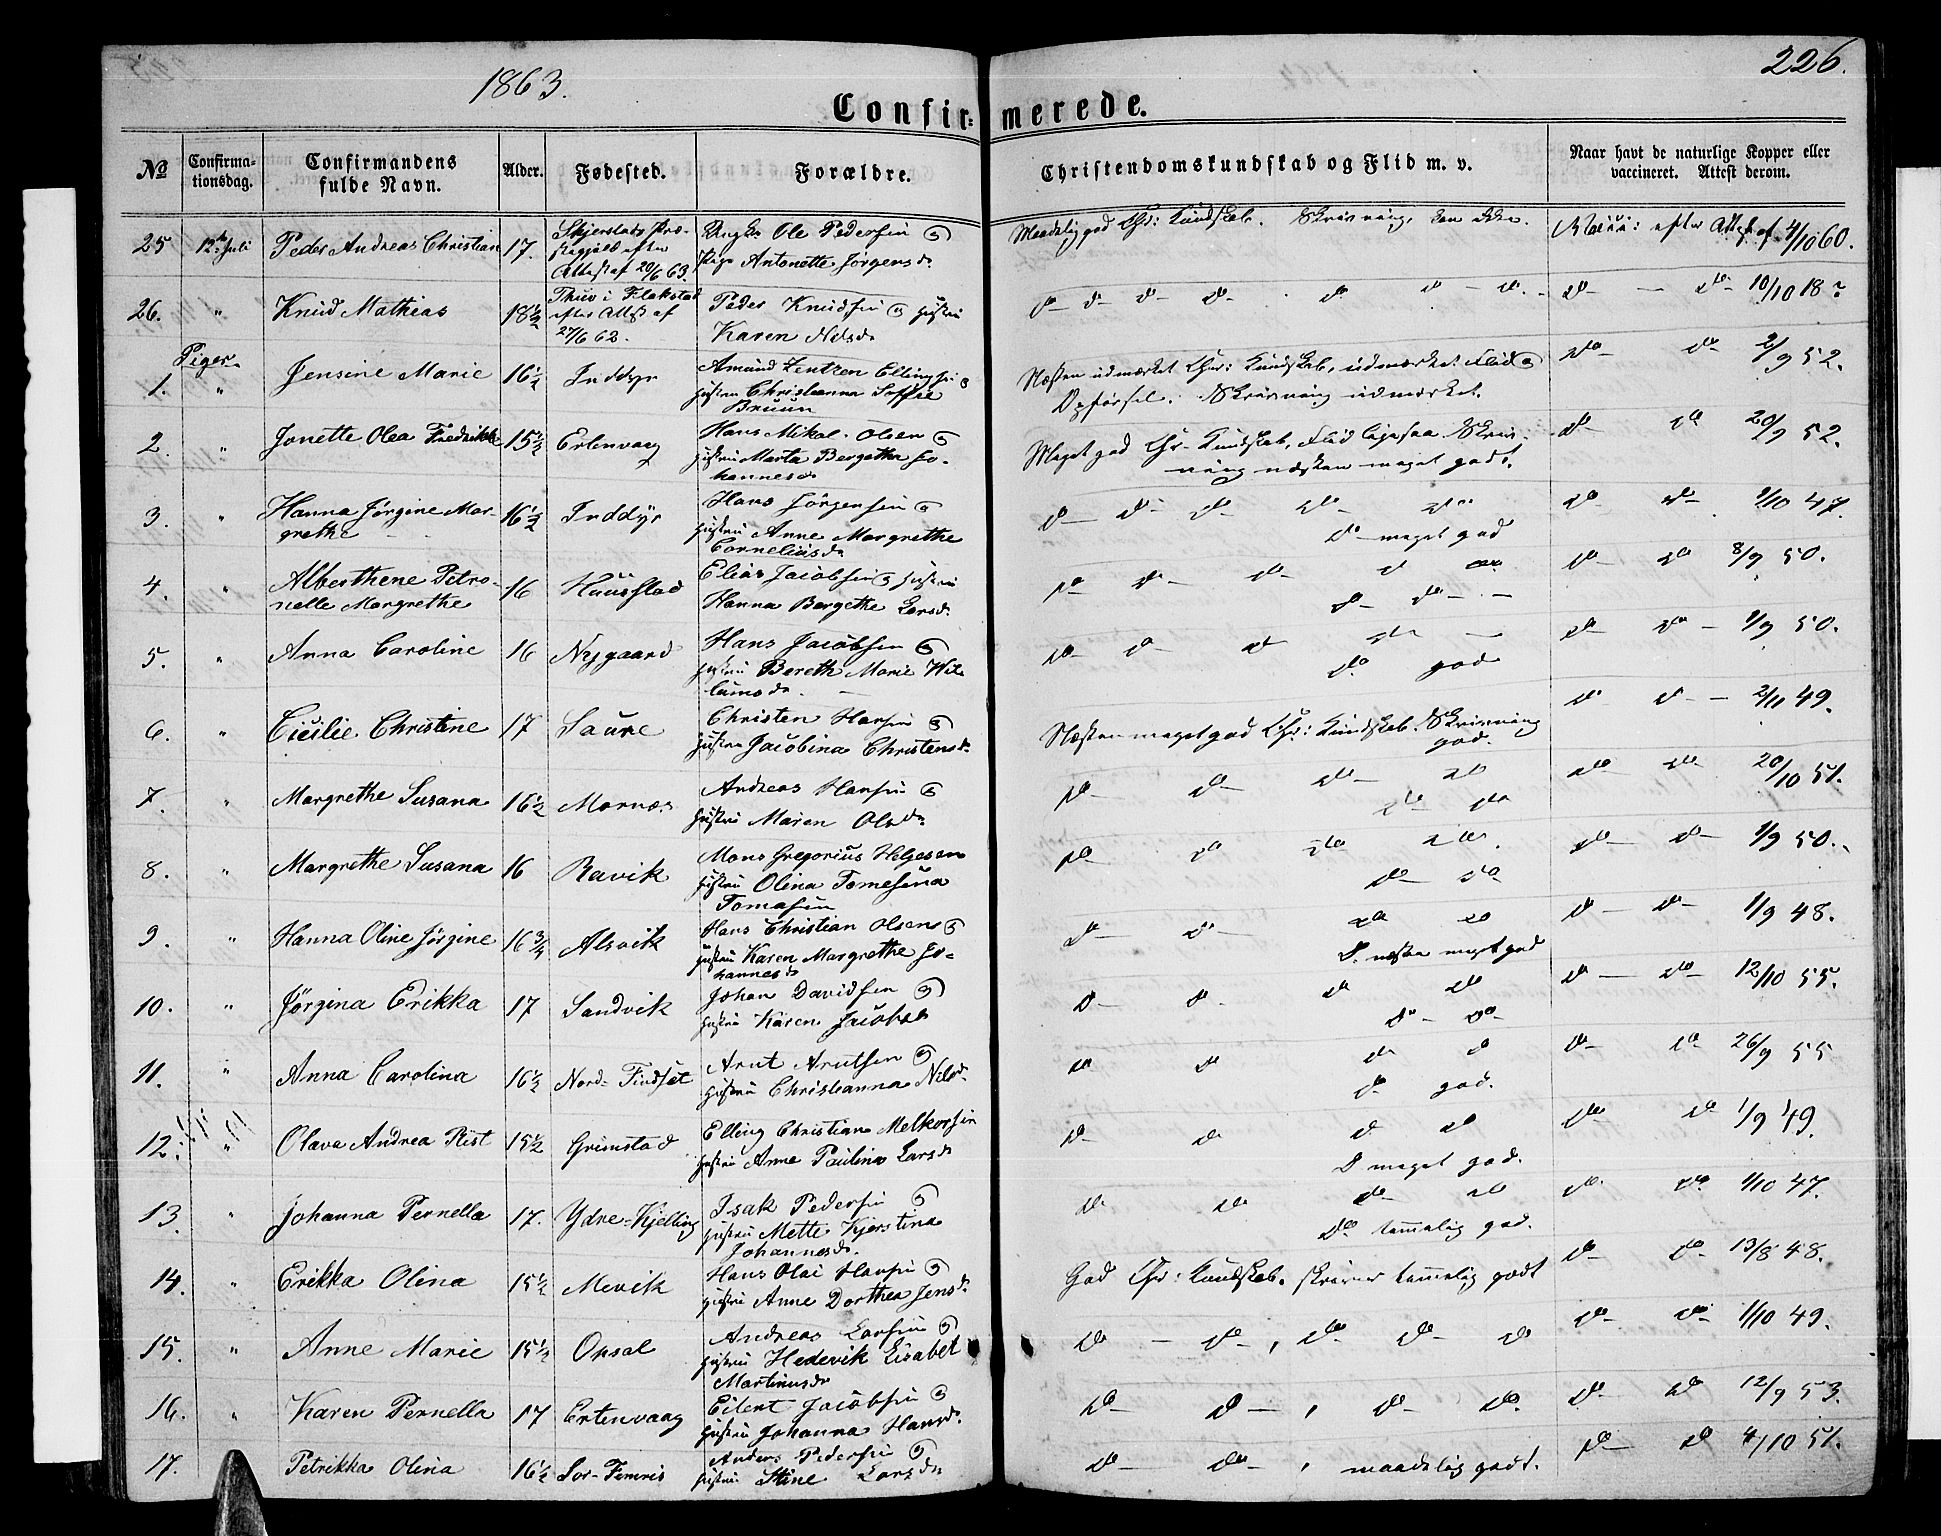 1863.
226.
Confir= merede.
No
Confirma-
tionsdag.
Confirmandens
fulde Navn.
Alder.
Fødested.
Forældre.
Christendomskundskab og Flid m. v.
Naar havt de naturlige Kopper eller
vaccineret. Attest derom.
25 12te Juli Peder Andreas Christian 17. Skjerstads Præ-
stegjeld efter
Attest af 20/6 63.
Ole Pedersen og
Pige Antonette Jørgensdr
Maadelig god Chr: Kundskab. Skrivning, kan ikke.
efter Attest af 4/10 60.
26. " Knud Mathias 18½ Thuv i Flakstad
efter Attest af
27/6 62.
Peder Knudsen og Hustru
Karen Nilsdr
do do do do do do do
do — do 10/10 18?
Piger
1. " Jensine Marie 16½ Inddyr
Amund Zentzen Ellingsen og
Hustru Christianna Soffie
Bruun
Næsten udmærket Chr: Kundskab, udmærket Flid og
Opførsel. Skrivning udmærket.
do do 2/9 52.
2. " Jonette Olea Fredrikke 15½ Ertenvaag
Hans Mikal Olsen og
Hustru Marta Bergetha Jo-
hannesdr
Meget god Chr. Kundskab, Flid ligesaa Skriv-
ning næsten meget godt.
do do 20/9 52.
3. " Hanna Jørgine Mar-
grethe 16½ Inddyr
Hans Jørgensen og
Hustru Anne Margrethe
Corneliusdr
do do do do do
do meget god
do do 9/10 47.
4. " Alberthene Petro-
nelle Margrethe 16 Huusstad
Elias Jacobsen og Hustru
Hanna Bergethe Larsdr
do do do do do
do do
do do 8/9 50.
5. " Anna Caroline 16 Nygaard
Hans Jacobsen og
Hustru Bereth Marie Wil-
lumsdr.
do do do do
do god
do do 1/9 50.
6. " Cicilie Christine 17 Saure
Christen Hansen og
Hustru Jacobina Christensdr
Næsten meget god Chr: Kundskab. Skrivning
god.
do do 2/11 49.
7. " Margrethe Susana 16½ Mornæs
Andreas Hansen og
Hustru Maren Olsdr
do do do do
do do
do do 20/10 51.
8. " Margrethe Susana 16 Ravik
Mons Gregorius Helgesen
Hustru Olina Tomesina
Tomasen
do do do do
do do
do do 1/9 50.
9. " Hanna Oline Jørgine 16¾ Alsvik
Hans Christian Olsen og
Hustru Karen Margrethe Jo-
hannesdr
do do do do
do næsten meget god
do do 1/9 48.
10. " Jørgina Erikka 17 Sandvik
Johan Davidsen og
Hustru Karen Jacobsdr
do do do do
do do
do do 12/10 55.
11. " Anna Carolina 16½ Nord-Findset
Arnt Arntsen og
Hustru Christianna Nilsdr
do do do do
do god.
do do 26/9 55
12. " Olava Andrea Rist 15½ Grimstad
Elling Christian Melkorsen
Hustru Anne Paulina Larsdr
do do do do
do meget god.
do do 1/9 49.
13. " Johanna Pernella 17. Ydre-Kjelling
Isak Pedersen og
Hustru Mette Kjerstina
Johannesdr.
do do do do
do temmelig god.
do do 1/10 47.
14. " Erikka Olina 15½ Mevik
Hans Olai Hansen og
Hustru Anne Dorthea Jensdr
God Chr: Kundskab. skriver temmelig godt
do do 13/8 48.
15. " Anne Marie 15½ Opsal
Andreas Larsen og
Hustru Hedevik Elisabet
Martinusdr
do — do, do do do
do do 1/10 49.
16. " Karen Pernella 17 Ertenvaag
Eilert Jacobsen og
Hustru Johanna Hansdr.
do do , do do
do do 12/9 53.
17. Petrikka Olina 16½ Sør-Femris
Anders Pedersen og
Hustru Stine Larsdr
do do , maadelig godt.
do do 4/10 51.